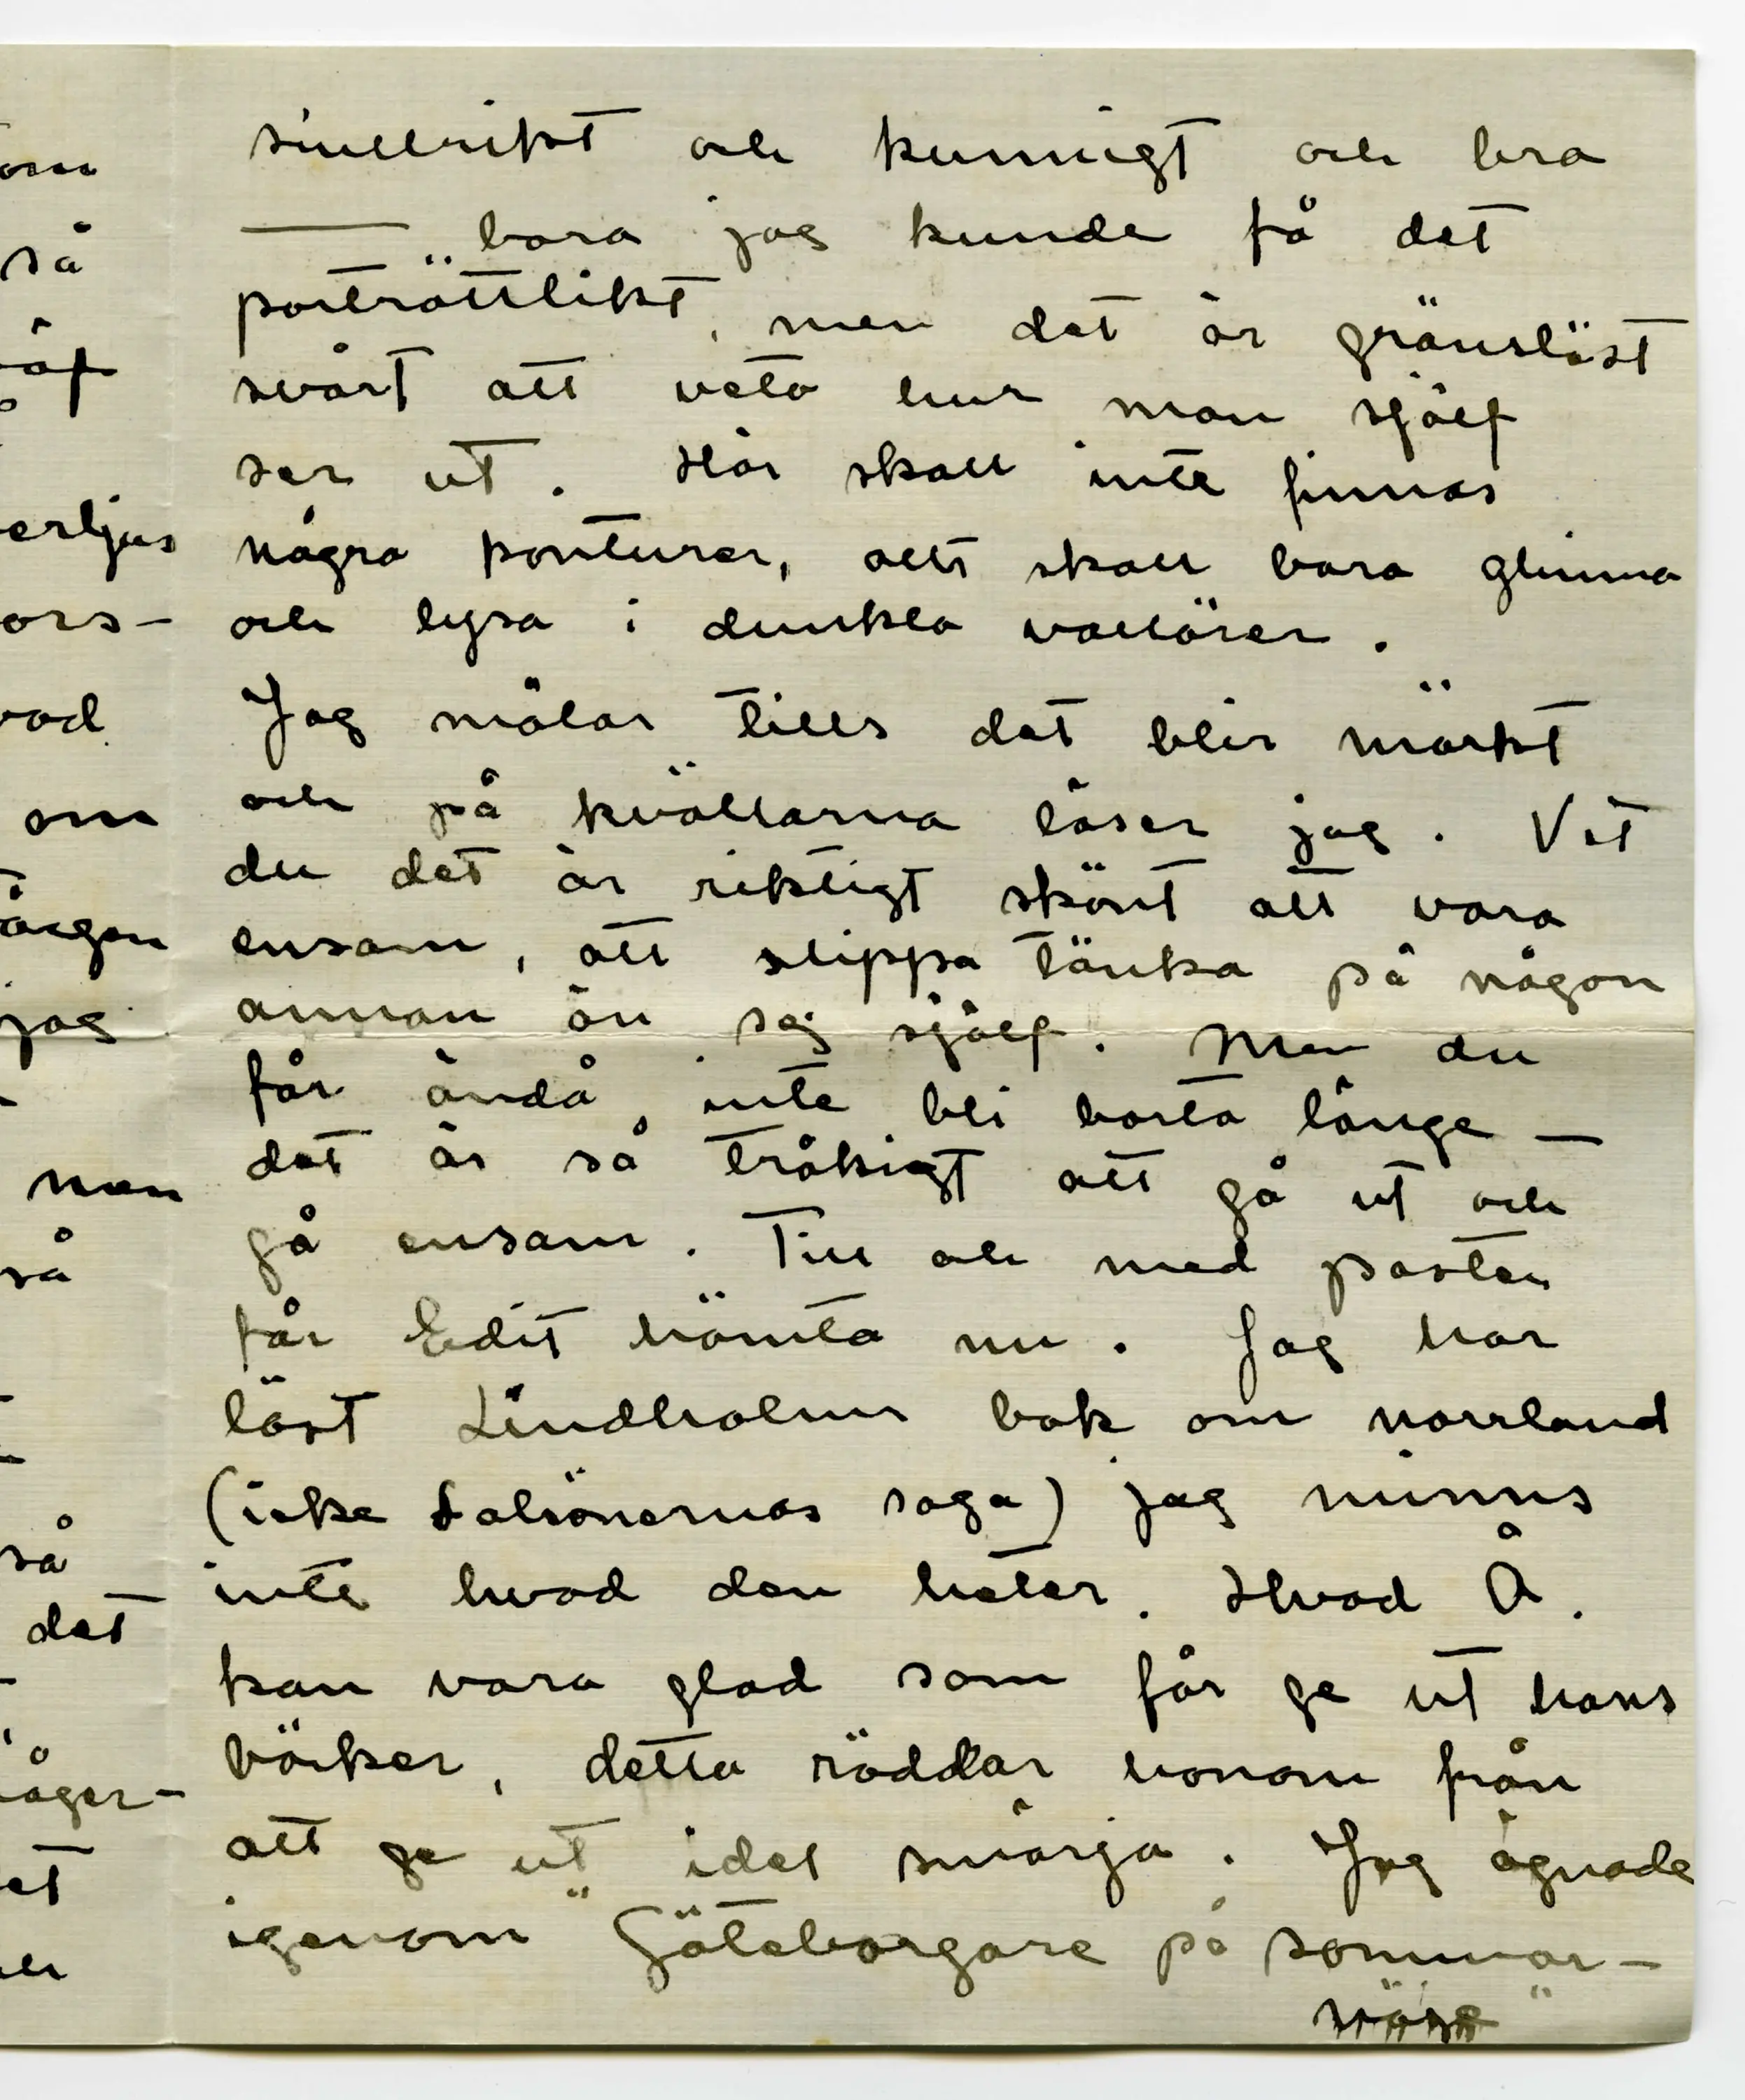 om
så
erljus
ors-
vad
om
jag
men
så
så
det
åger-
et
sinnrikt och kunnigt och bra
— bara jag kunde få det
porträttlikt, men det är gränslöst
svårt att veta hur man sjelf
ser ut. Här skall inte finnas
några konturer, allt skall bara glimma
och lysa i dunkla vallörer.
Jag målar tills det blir mörkt
och på kvällarna läser jag. Vet
du det är riktigt skönt att vara
ensam, att slippa tänka på någon
annan än sej sjelf. Men du
får ändå inte bli borta länge —
det är så tråkigt att gå ut och
gå ensam. Till och med posten
får Edit hämta nu. Jag har
läst Lindholms bok om norrland
(icke Ladsönernas saga) jag minns
inte hvad den heter. Hvad Å.
kan vara glad som får ge ut hans
böcker, detta räddar honom från
att ge ut idel smörja. Jag ögnade
igenom "Göteborgare på sommar-
nöje"